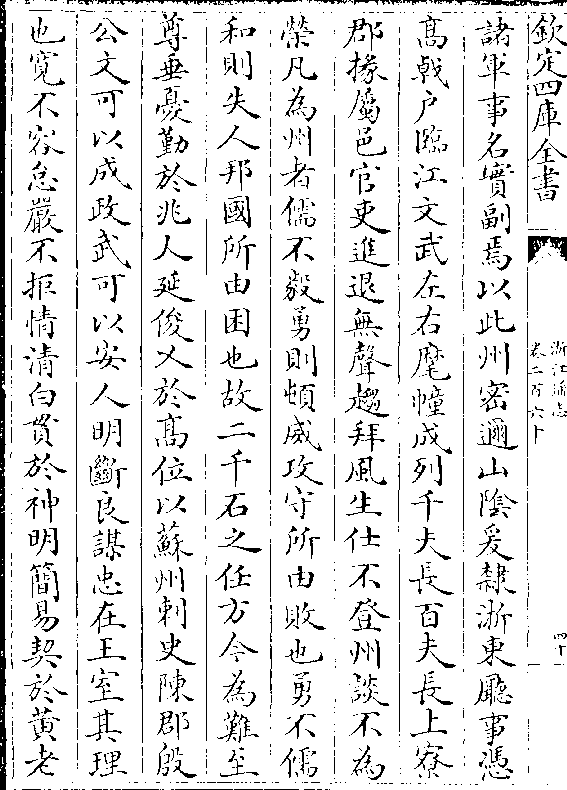 欽定四庫全書
浙江通志
卷二百六十
四十
諸軍事名實副焉以此州密邇山陰爰隸浙東廳事憑
髙戟户臨江文武左右麾幢成列千夫長百夫長上寮
郡掾屬邑官吏進退無聲趨拜風生仕不登州談不為
榮凡為州者儒不毅勇則頓威攻守所由敗也勇不儒
和則失人邦國所由困也故二千石之任方今為難至
尊垂憂勤於兆人延俊乂於髙位以蘇州刺史陳郡殷
公文可以成政武可以安人明斷良謀忠在王室其理
也寛不容怠嚴不拒情清白貫於神明簡易契於黄老